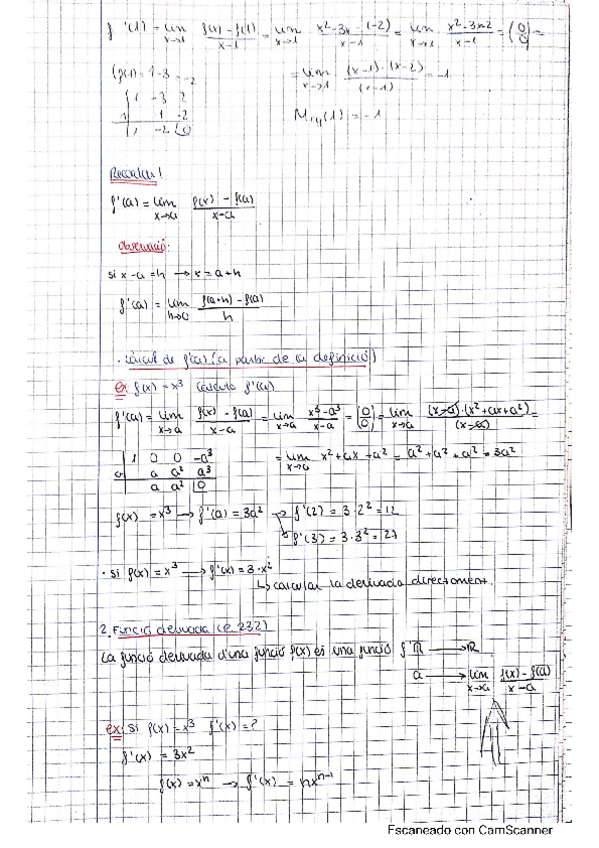 f'(1) = lim x→1 f(x) - f(1) / x-1 = lim x→1 x² - 3x - (-2) / x-1 = lim x→1 x² - 3x+2 / x-1 = (0/0) =
f(1) = 1-3 = -2
1 -3 2
1 1 -2
1 -2 0
= lim x→1 (x-1)·(x-2) / (x-1) = -1
M rtg(1) = -1
Recordar!
f'(a) = lim x→a f(x) - f(a) / x-a
Observació:
si x-a = h → x = a+h
f'(a) = lim h→0 f(a+h) - f(a) / h
· Càlcul de f'(a) (a partir de la definició)
ex: f(x) = x³ calcula f'(a)
f'(a) = lim x→a f(x) - f(a) / x-a = lim x→a x³-a³ / x-a = (0/0) = lim x→a (x-a)·(x²+ax+a²) / (x-a) =
1 0 0 -a³
a a a² a³
a a² 0
= lim x→a x²+ax+a² = a²+a²+a² = 3a²
f(x) = x³ → f'(a) = 3a² → f'(2) = 3·2² = 12
→ f'(3) = 3·3² = 27
· si f(x) = x³ → f'(x) = 3·x²
↳ calcular la derivada directament.
2. Funció derivada (p. 232)
La funció derivada d'una funció f(x) és una funció f' ℝ → ℝ
a → lim x→a f(x) - f(a) / x-a
ex: si f(x) = x³ f'(x) = ?
f'(x) = 3x²
f(x) = xⁿ → f'(x) = nxⁿ⁻¹
Escaneado con CamScanner